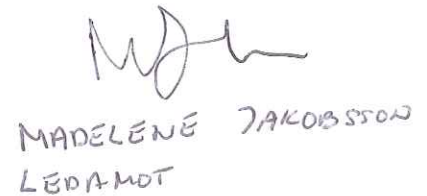 MADELENE JAKOBSSON
LEDAMOT